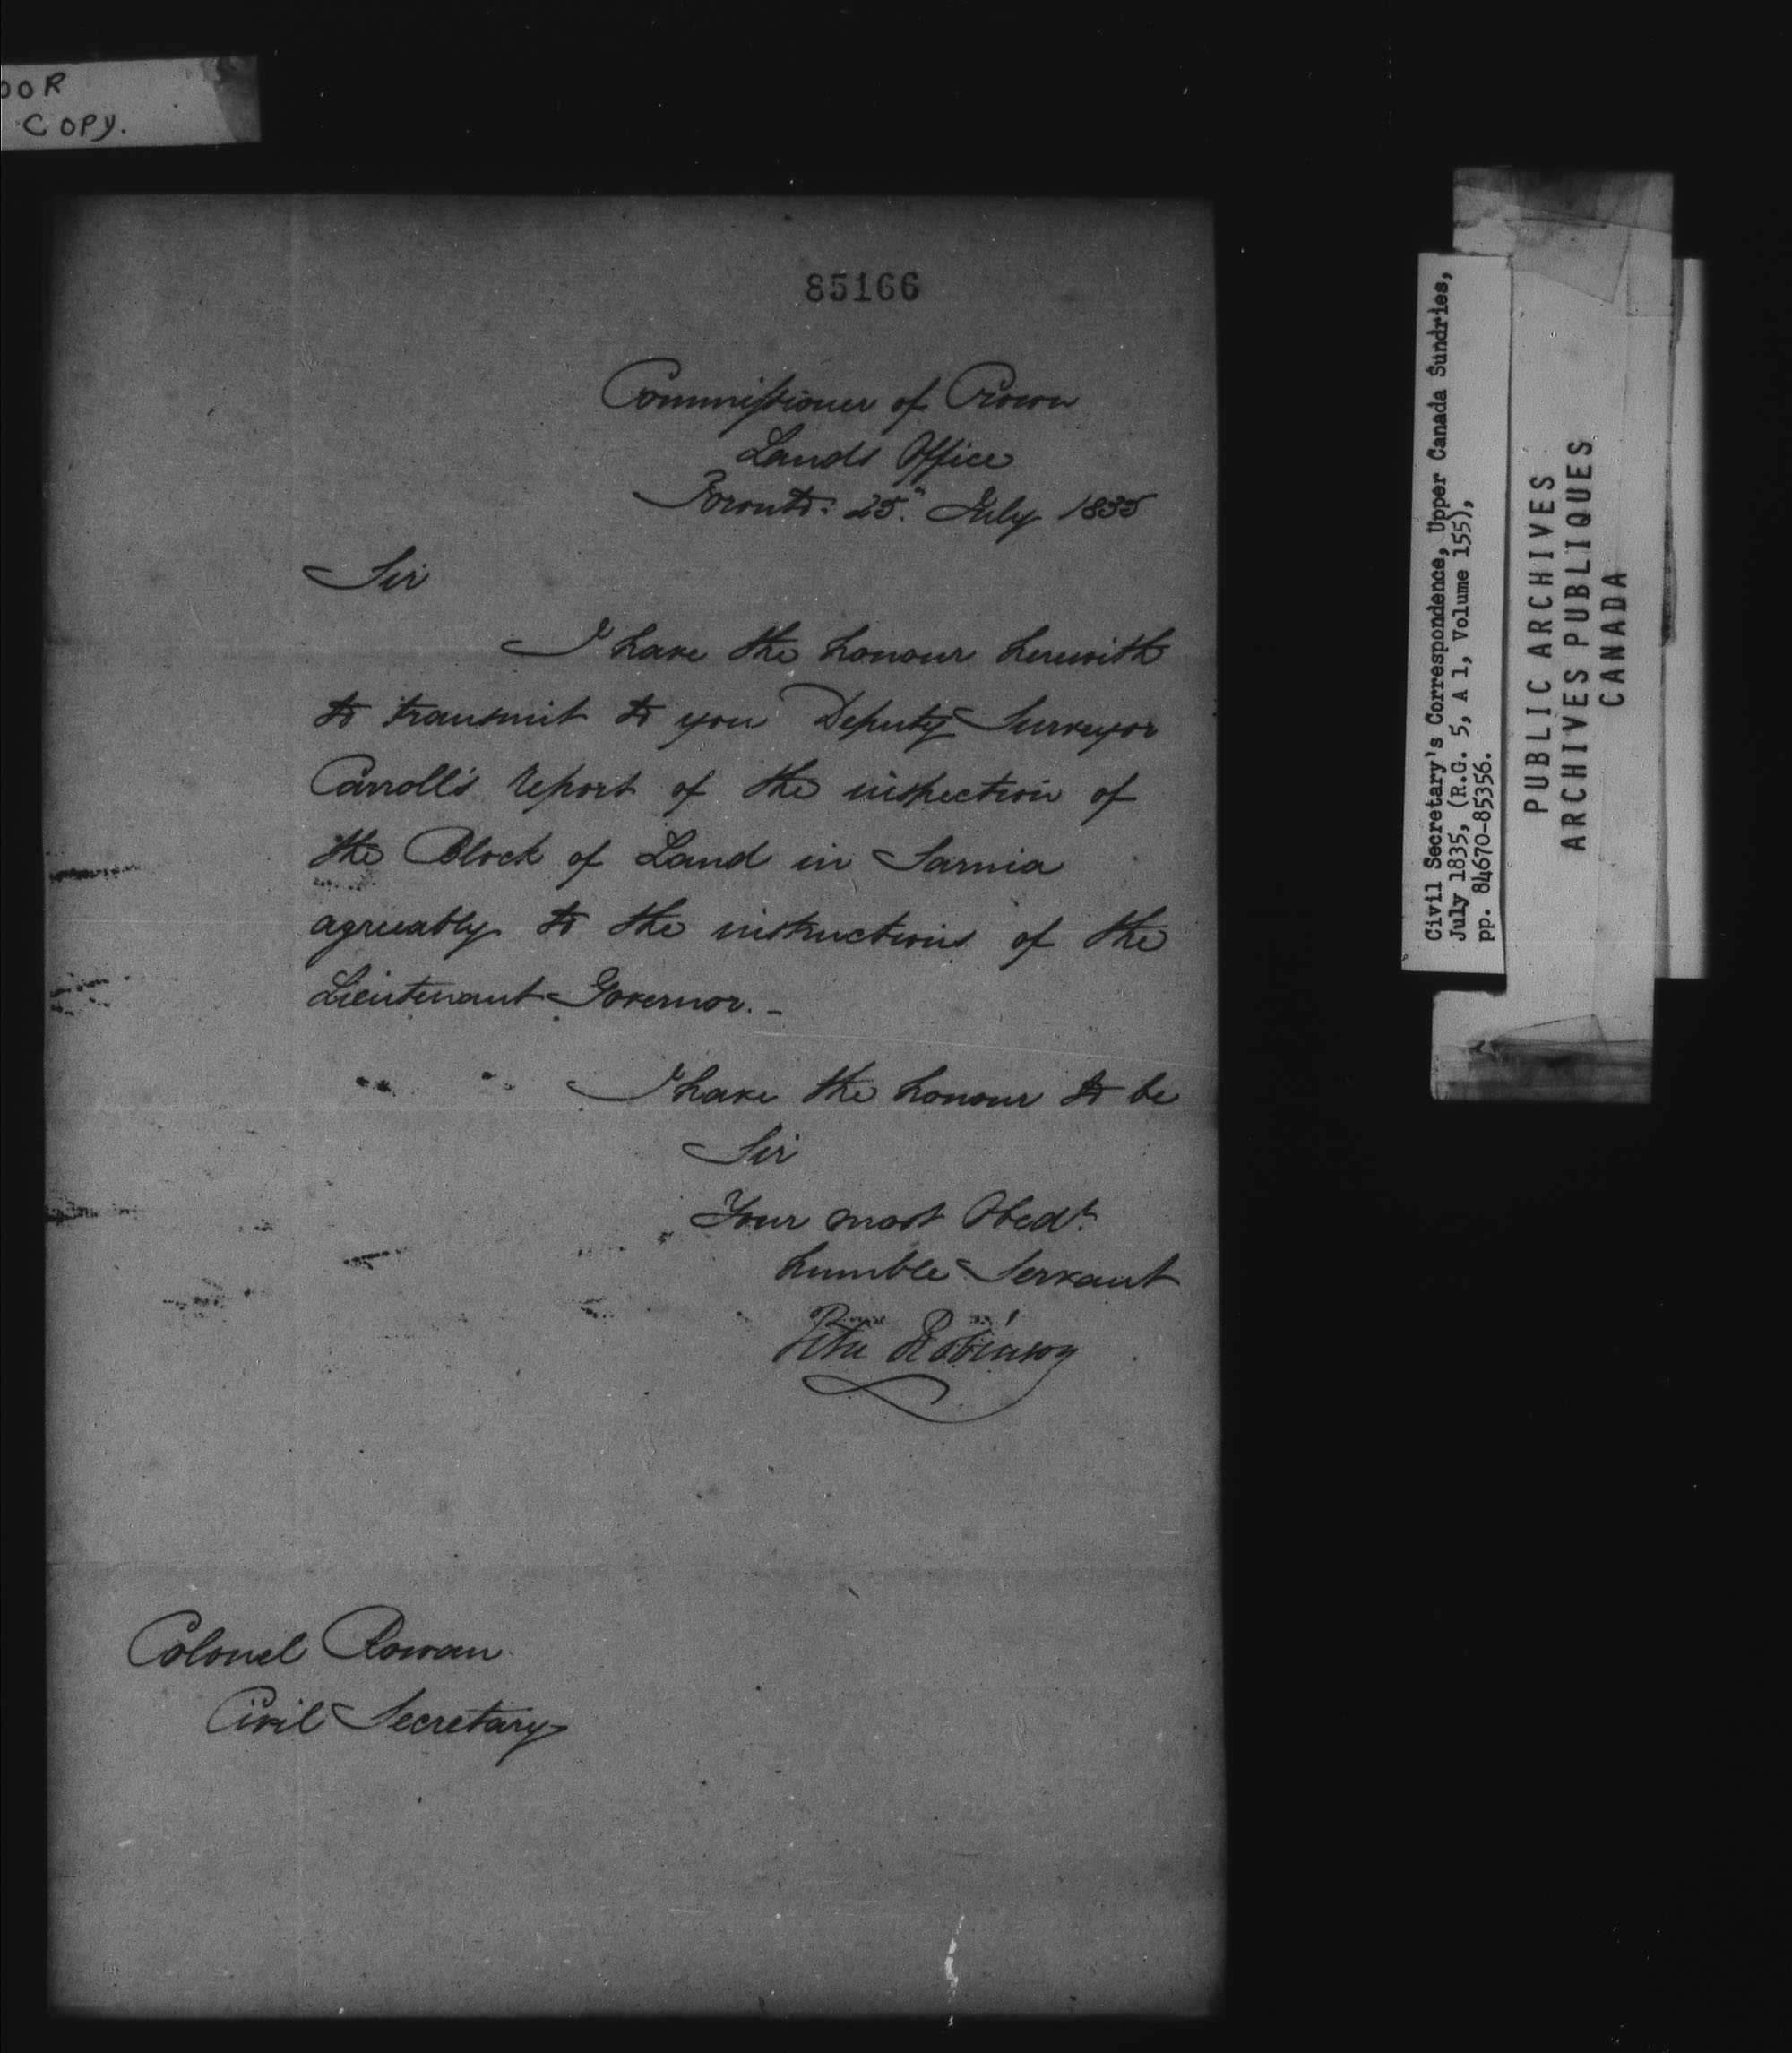 OOR
COPY.
85166
Commissioner of Crown
Lands Office
Toronto: 25.th July 1835
Sir
I have the honour herewith
to transmit to you Deputy Surveyor
Carroll's report of the inspection of
the Block of Land in Sarnia
agreeably to the instructions of the
Lieutenant Governor. -
I have the honour to be
Sir
Your most Obedt.
humble Servant
Peter Robinson
Colonel Rowan
Civil Secretary
Civil Secretary's Correspondence, Upper Canada Sundries,
July 1835, (R.G. 5, A 1, Volume 155),
pp. 84670-85356.
PUBLIC ARCHIVES
ARCHIVES PUBLIQUES
CANADA